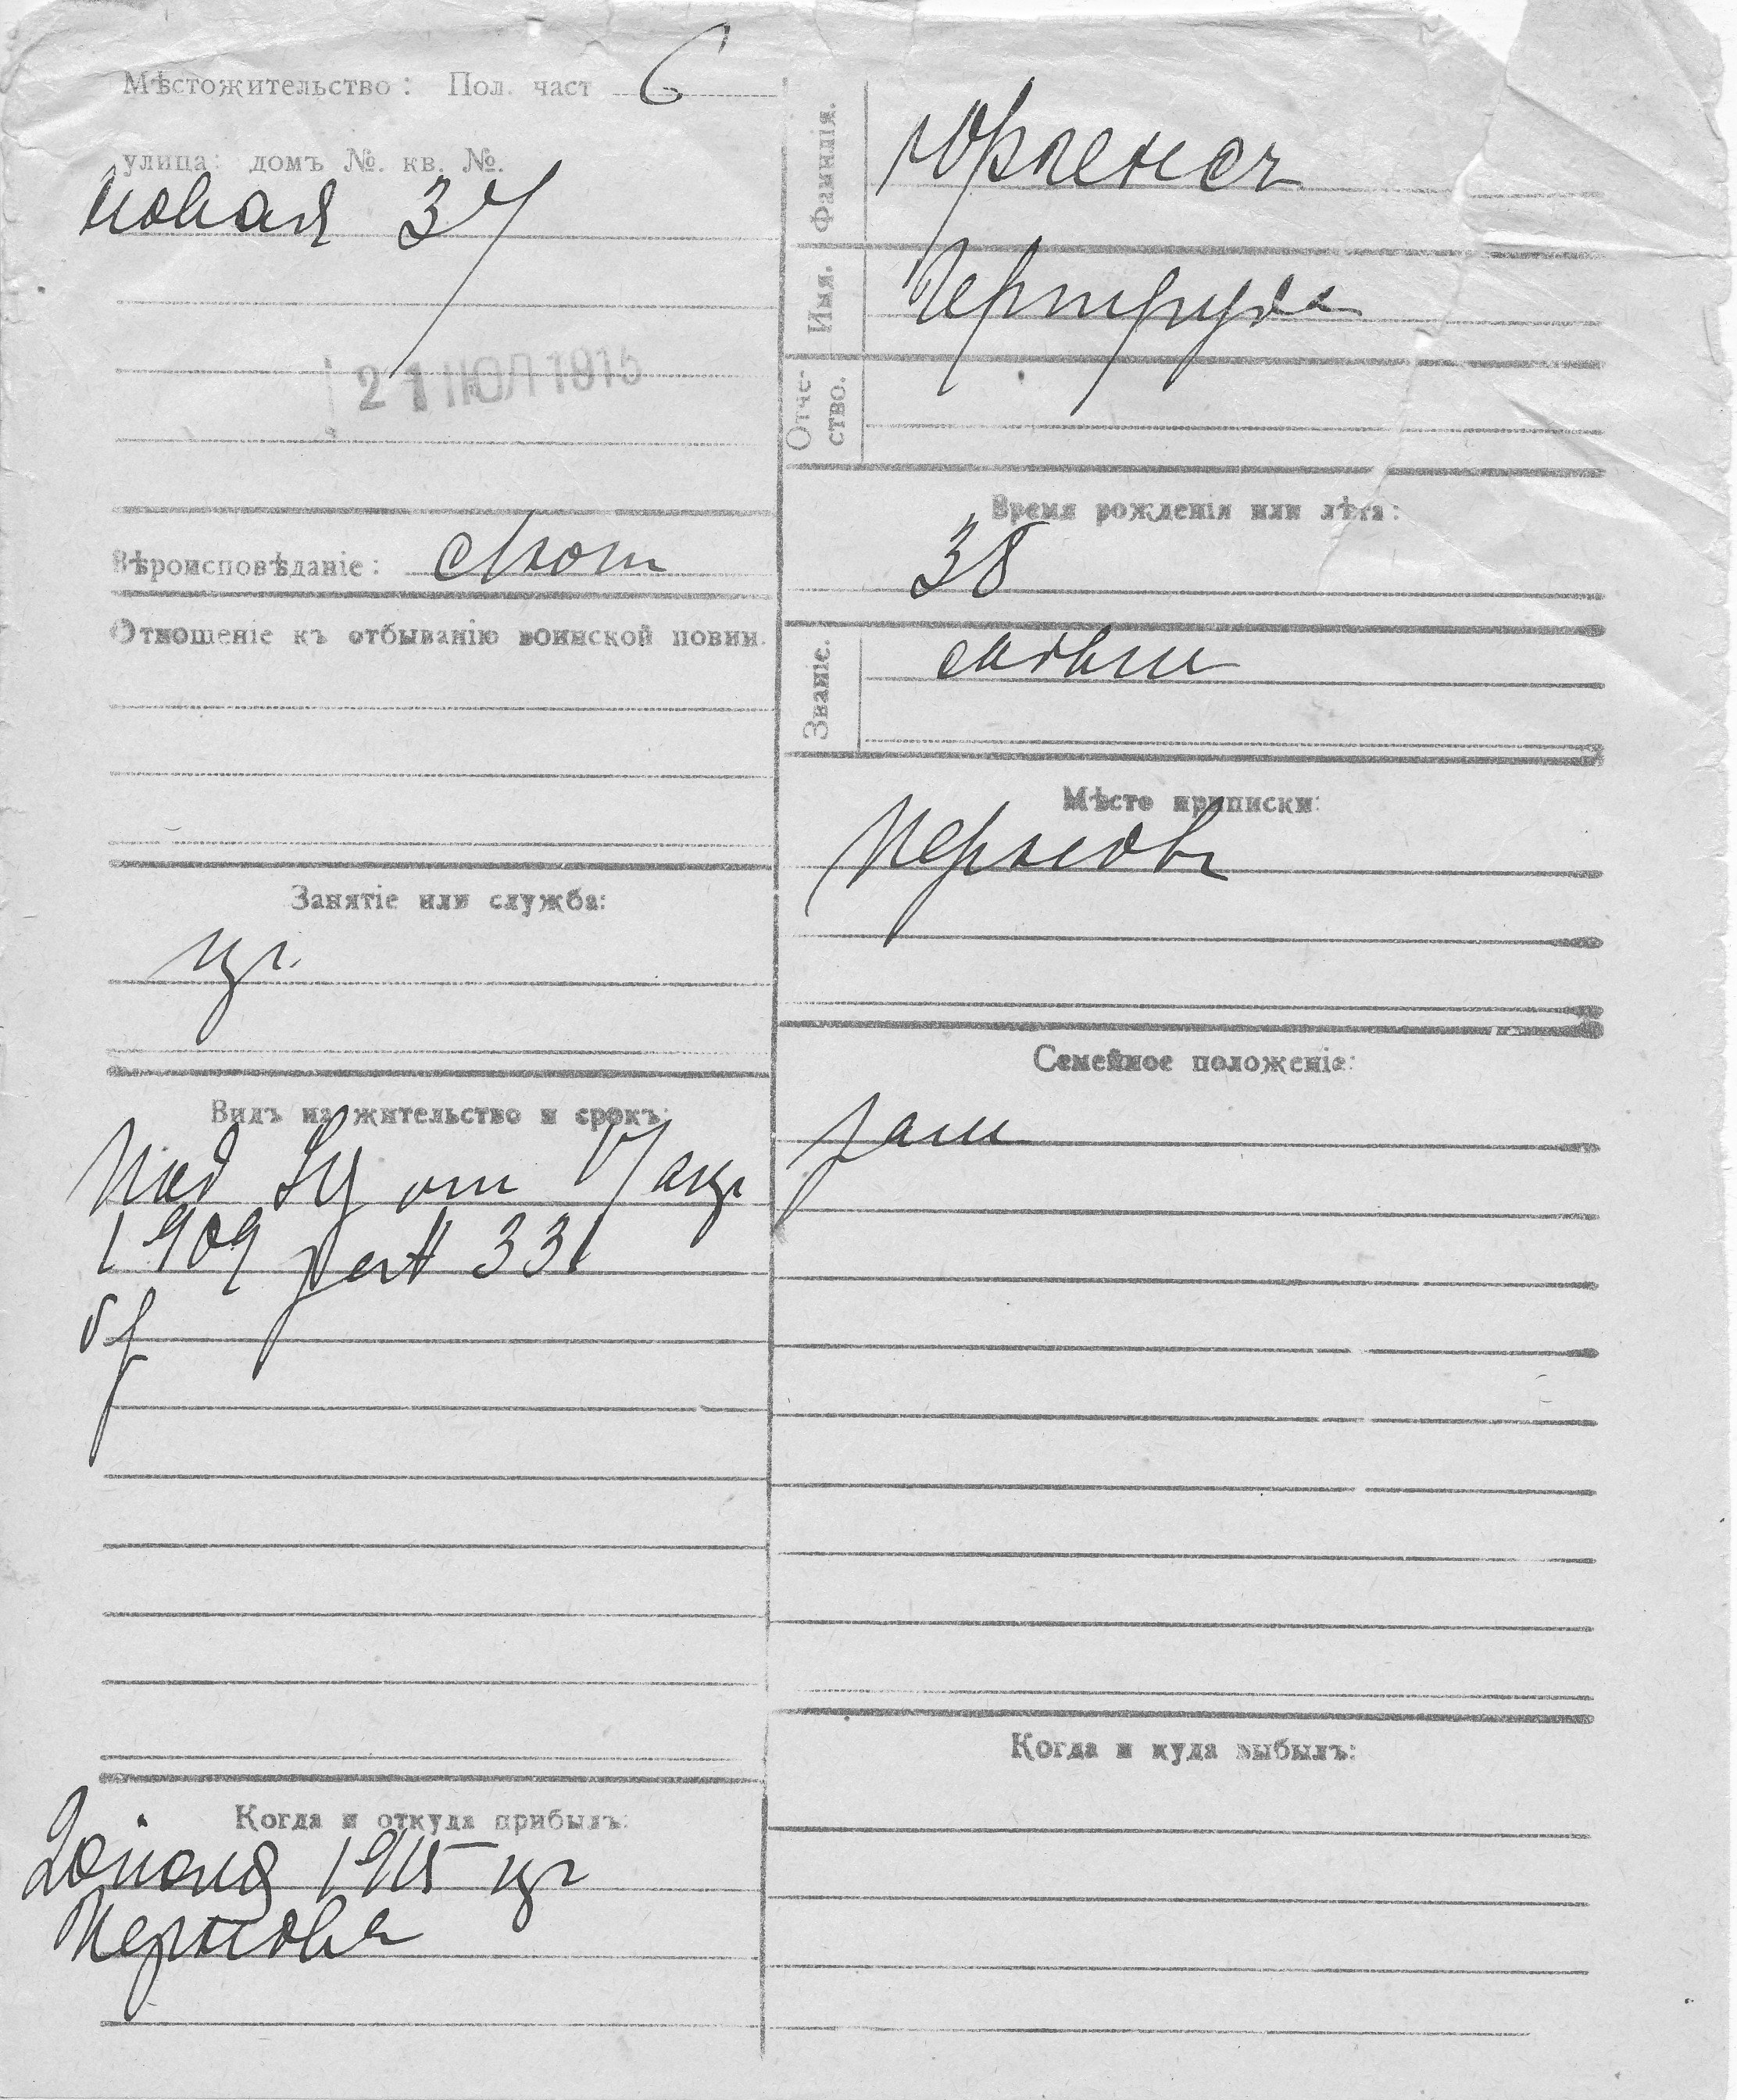 Мѣстожительство: Пол. част 6
улица: домъ №. кв. №.
новая 37
21 ІЮЛ 1915
Вѣроисповѣданіе: Лют
Отношеніе къ отбыванію воинской повин.
Занятіе или служба:
Видъ на жительство и срокъ:
от 17 авг
1909 за № 331
бр
Когда и откуда прибылъ:
20 июля 1915 из
Пернова
Фамилія. Юргенсъ
Имя. Гертруда
Отчество.
Время рожденія или лѣта:
38
Званіе.
Мѣсто приписки:
Перновъ
Семейное положеніе:
зам
Когда и куда выбылъ: